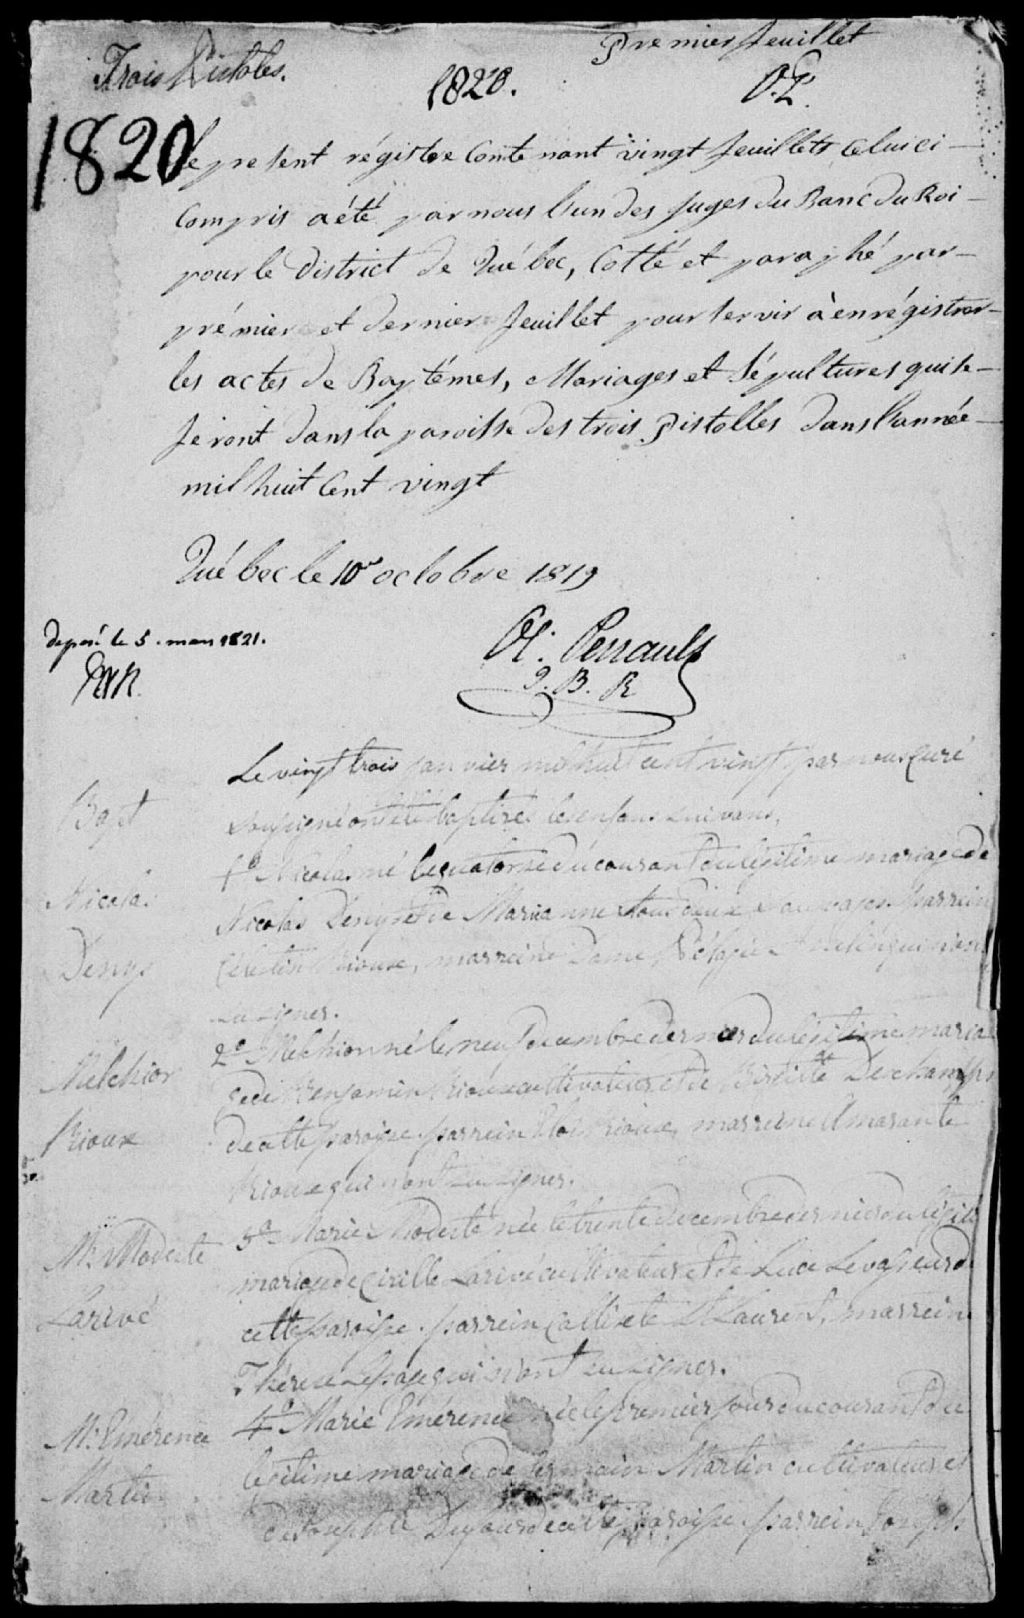 Premier feuillet
Trois Pistoles.
1820.
O.P.
1820
Le present régistre Contenant vingt feuillets Celui ci
Compris a été par nous l'un des Juges du Banc du Roi
pour le District de Québec, Cotté et paraphé par
prémier et dernier feuillet pour servir à enrégistrer
les actes de Baptêmes, Mariages et Sépultures qui se
feront dans la paroisse des trois Pistolles dans l'année
mil huit Cent vingt
Québec le 10e octobre 1819
deposé le 5. mars 1821.
Ol: Perrault
J. B. R
Le vingt trois janvier mil huit cent vingt par nous Curé
Bapt
soussigné ont été baptisés les enfans suivans,
1o Nicolas né le quatorze du courant du légitime mariage de
Nicolas
Nicolas Denys et de Marianne tous deux sauvages. Parrein
Denys
Rioux, marreine Dame qui n'ont
su signer.
2o Melchior né le neuf decembre dernier du légitime maria
Melchior
ge de Benjamin Rioux cultivateur et de Deschamps
Rioux
de cette paroisse. parrein Eloi Rioux, marreine Amarante
Rioux qui n'ont su signer.
3o Marie Modeste née le trente decembre dernier du légiti
M. Modeste
mariage de Cirille Larivé cultivateur et de Luce Levasseur de
Larivé
cette paroisse. parrein Calliste St Laurent, marrein
Thérese Lepage qui n'ont su signer.
4o Marie Emérence née le premier jour du courant du
M. Emérence
légitime mariage de Germain Martin cultivateur et
Martin
de cette paroisse. parrein Joseph